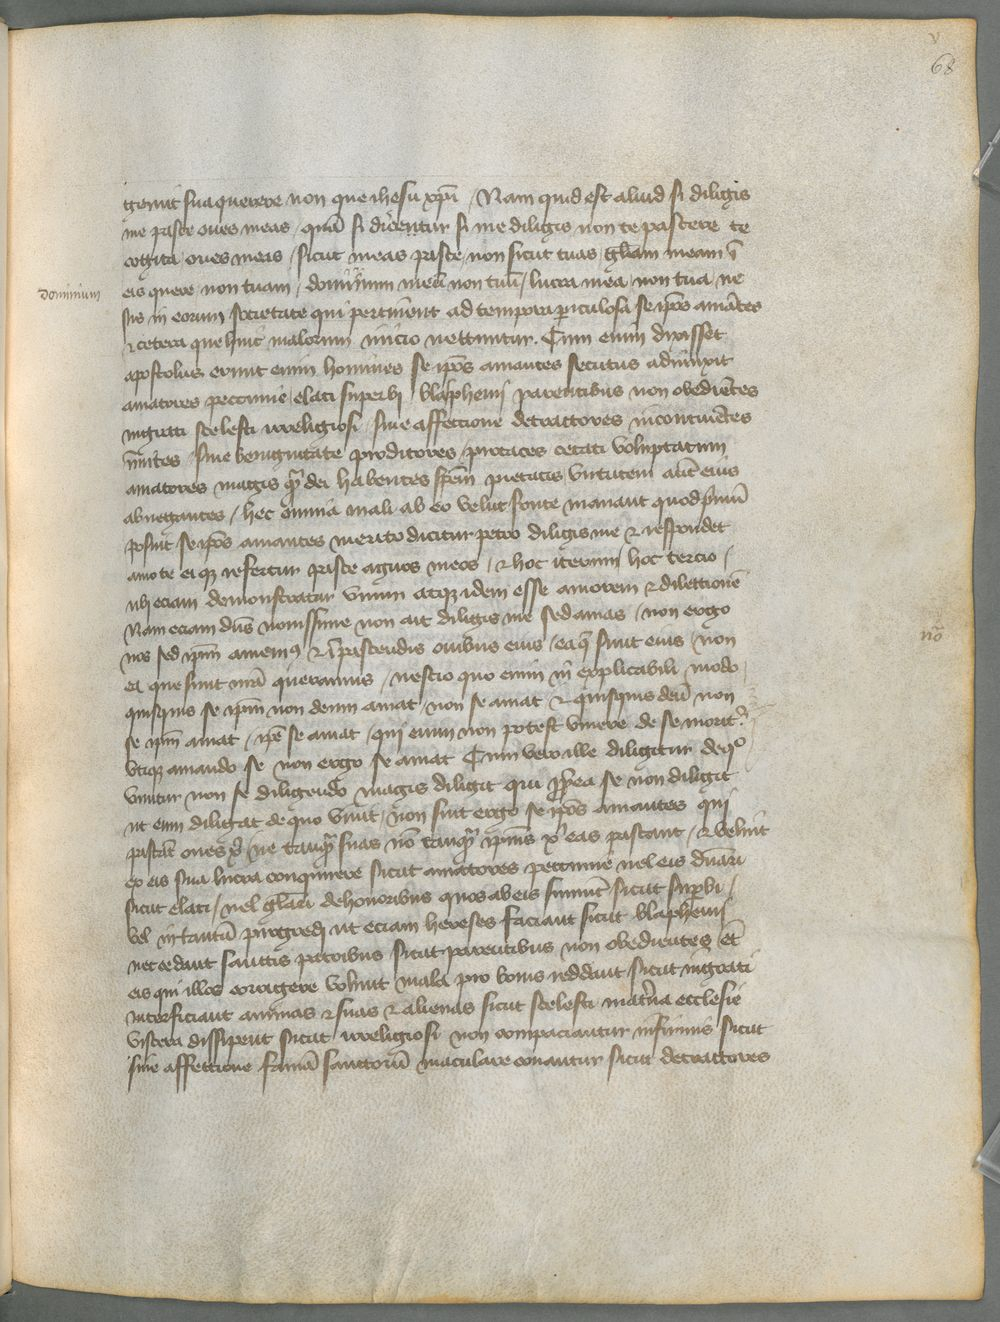 v
68
gerunt sua querere non que ihesu xpi / Nam quid est aliud si diligis
me pasce oues meas / quam si diceretur si me diligis non te pascere te
cogita / oues meas / sicut meas pasce / non sicut tuas / gliam meam i
eis quere / non tuam / dominium meu non tuu / lucra mea / non tua / ne
dominium
sis in eorum societate qui pertinent ad tempora piculosa se ipos amates
& cetera que huic malorum inicio nettuntur. Cum enim dixisset
apostolus erunt enim homines se ipos amantes secutus adiunxit
amatores peccunie / elati superbi / blasphemi parentibus non obedietes
ingrati scelesti irreligiosi / sine affectione detractores incontinetes
inmites / sine benignitate proditores / procaces cecati voluptatum
amatores magis qua dei habentes spem pietatis virtutem aut eius
abnegantes / hec omnia mali ab eo velut fonte manant quod primu
posuit se ipos amantes merito dicitur petro diligis me & respondet
amo te ei qz refertur pasce agnos meos / & hoc iterum / hoc tercio /
ubi eciam demonstratur vnum atqz idem esse amorem & dilectione
Nam eciam dns nouissime non ait diligis me sed amas / non ergo
nos sed ipm amem9 & i pascendis ouibus eius / ea que sunt eius / non
no
ea que sunt nra queramus / nescio quo enim in explicabili modo
quisquis se ipm non deum amat / non se amat & quisquis deu non
se ipm amat / ipe se amat / qui enim non potest viuere de se morit
vtique amando se non ergo se amat Cum vero ille diligitur de qo
viuitur non se diligendo magis diligit qui pptea se non diligit
ut eum diligat de quo viuit / non sint ergo se ipos amantes qui
pascat oues xi ne tanqua suas no tanqua ipius x eas pascant / & velint
ex eis sua lucra conquirere sicut amatores peccunie uel eis dnari
sicut elati / uel gliari de honoribus quos ab eis sumut sicut supbi /
vel in tantu progredi ut eciam hereses faciant sicut blasphemi
nec cedant sanctis patribus sicut parentibus non obedientes et
eis qui illos corrigere volunt mala pro bonis reddant sicut ingrati
interficiant animas & suas & alienas sicut scelesti matna ecclesie
viscera dissipent sicut irreligiosi non compaciantur infirmis sicut
sine affectione fama sanctoru maculare conantur sicut detractores